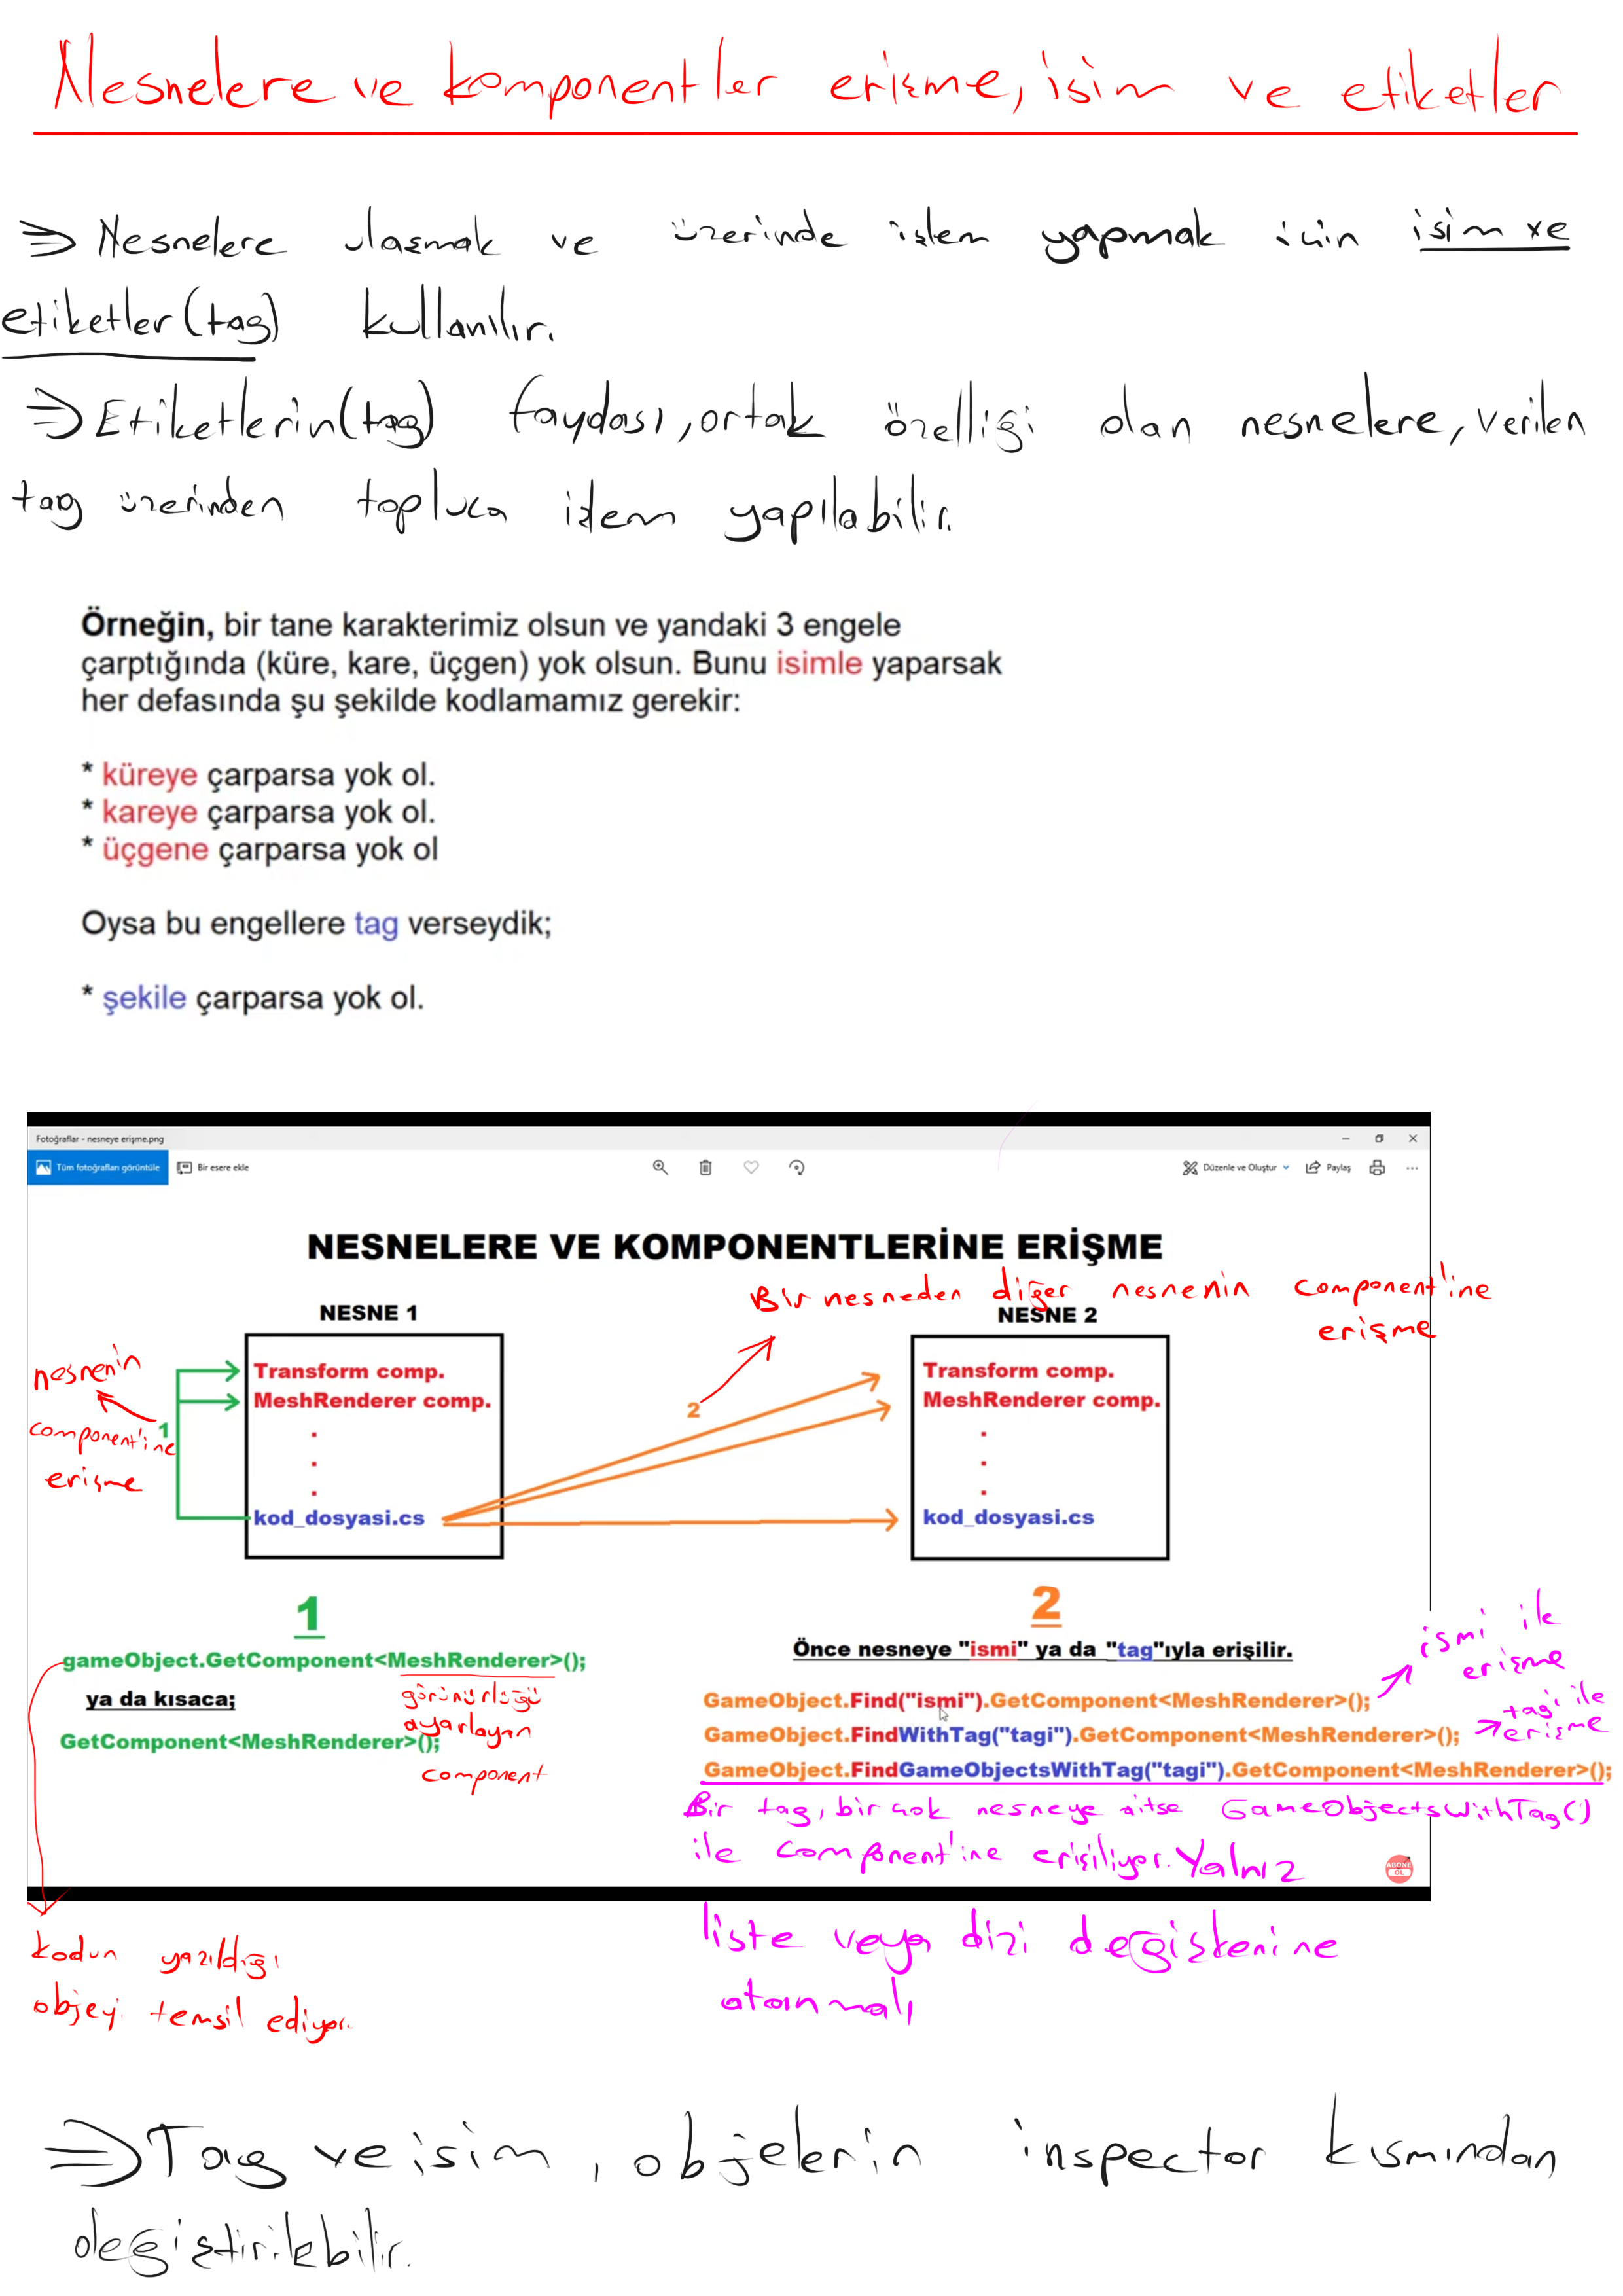 Nesnelere ve komponentler erişme, isim ve etiketler
⇒ Nesnelere ulaşmak ve üzerinde işlem yapmak için isim ve
etiketler(tag) kullanılır.
⇒ Etiketlerin(tag) faydası, ortak özelliği olan nesnelere, verilen
tag üzerinden topluca işlem yapılabilir.
Örneğin, bir tane karakterimiz olsun ve yandaki 3 engele
çarptığında (küre, kare, üçgen) yok olsun. Bunu isimle yaparsak
her defasında şu şekilde kodlamamız gerekir:
* küreye çarparsa yok ol.
* kareye çarparsa yok ol.
* üçgene çarparsa yok ol
Oysa bu engellere tag verseydik;
* şekile çarparsa yok ol.
Fotoğraflar - nesneye erişme.png
Tüm fotoğrafları görüntüle
Bir esere ekle
Düzenle ve Oluştur
Paylaş
NESNELERE VE KOMPONENTLERİNE ERİŞME
Bir nesneden diğer nesnenin component'ine
erişme
NESNE 1
NESNE 2
nesnenin
component'ine
erişme
1
Transform comp.
MeshRenderer comp.
.
.
.
kod_dosyasi.cs
2
Transform comp.
MeshRenderer comp.
.
.
.
kod_dosyasi.cs
1
gameObject.GetComponent<MeshRenderer>();
ya da kısaca;
GetComponent<MeshRenderer>();
görünürlüğü
ayarlayan
component
2
Önce nesneye "ismi" ya da "tag"ıyla erişilir.
GameObject.Find("ismi").GetComponent<MeshRenderer>();
ismi ile
erişme
GameObject.FindWithTag("tagi").GetComponent<MeshRenderer>();
tagi ile
erişme
GameObject.FindGameObjectsWithTag("tagi").GetComponent<MeshRenderer>();
Bir tag, bir çok nesneye aitse GameObjectsWithTag()
ile component'ine erişiliyor. Yalnız
liste veya dizi değişkenine
atanmalı
ABONE
OL
kodun yazıldığı
objeyi temsil ediyor.
⇒ Tag ve isim, objelerin inspector kısmından
değiştirilebilir.